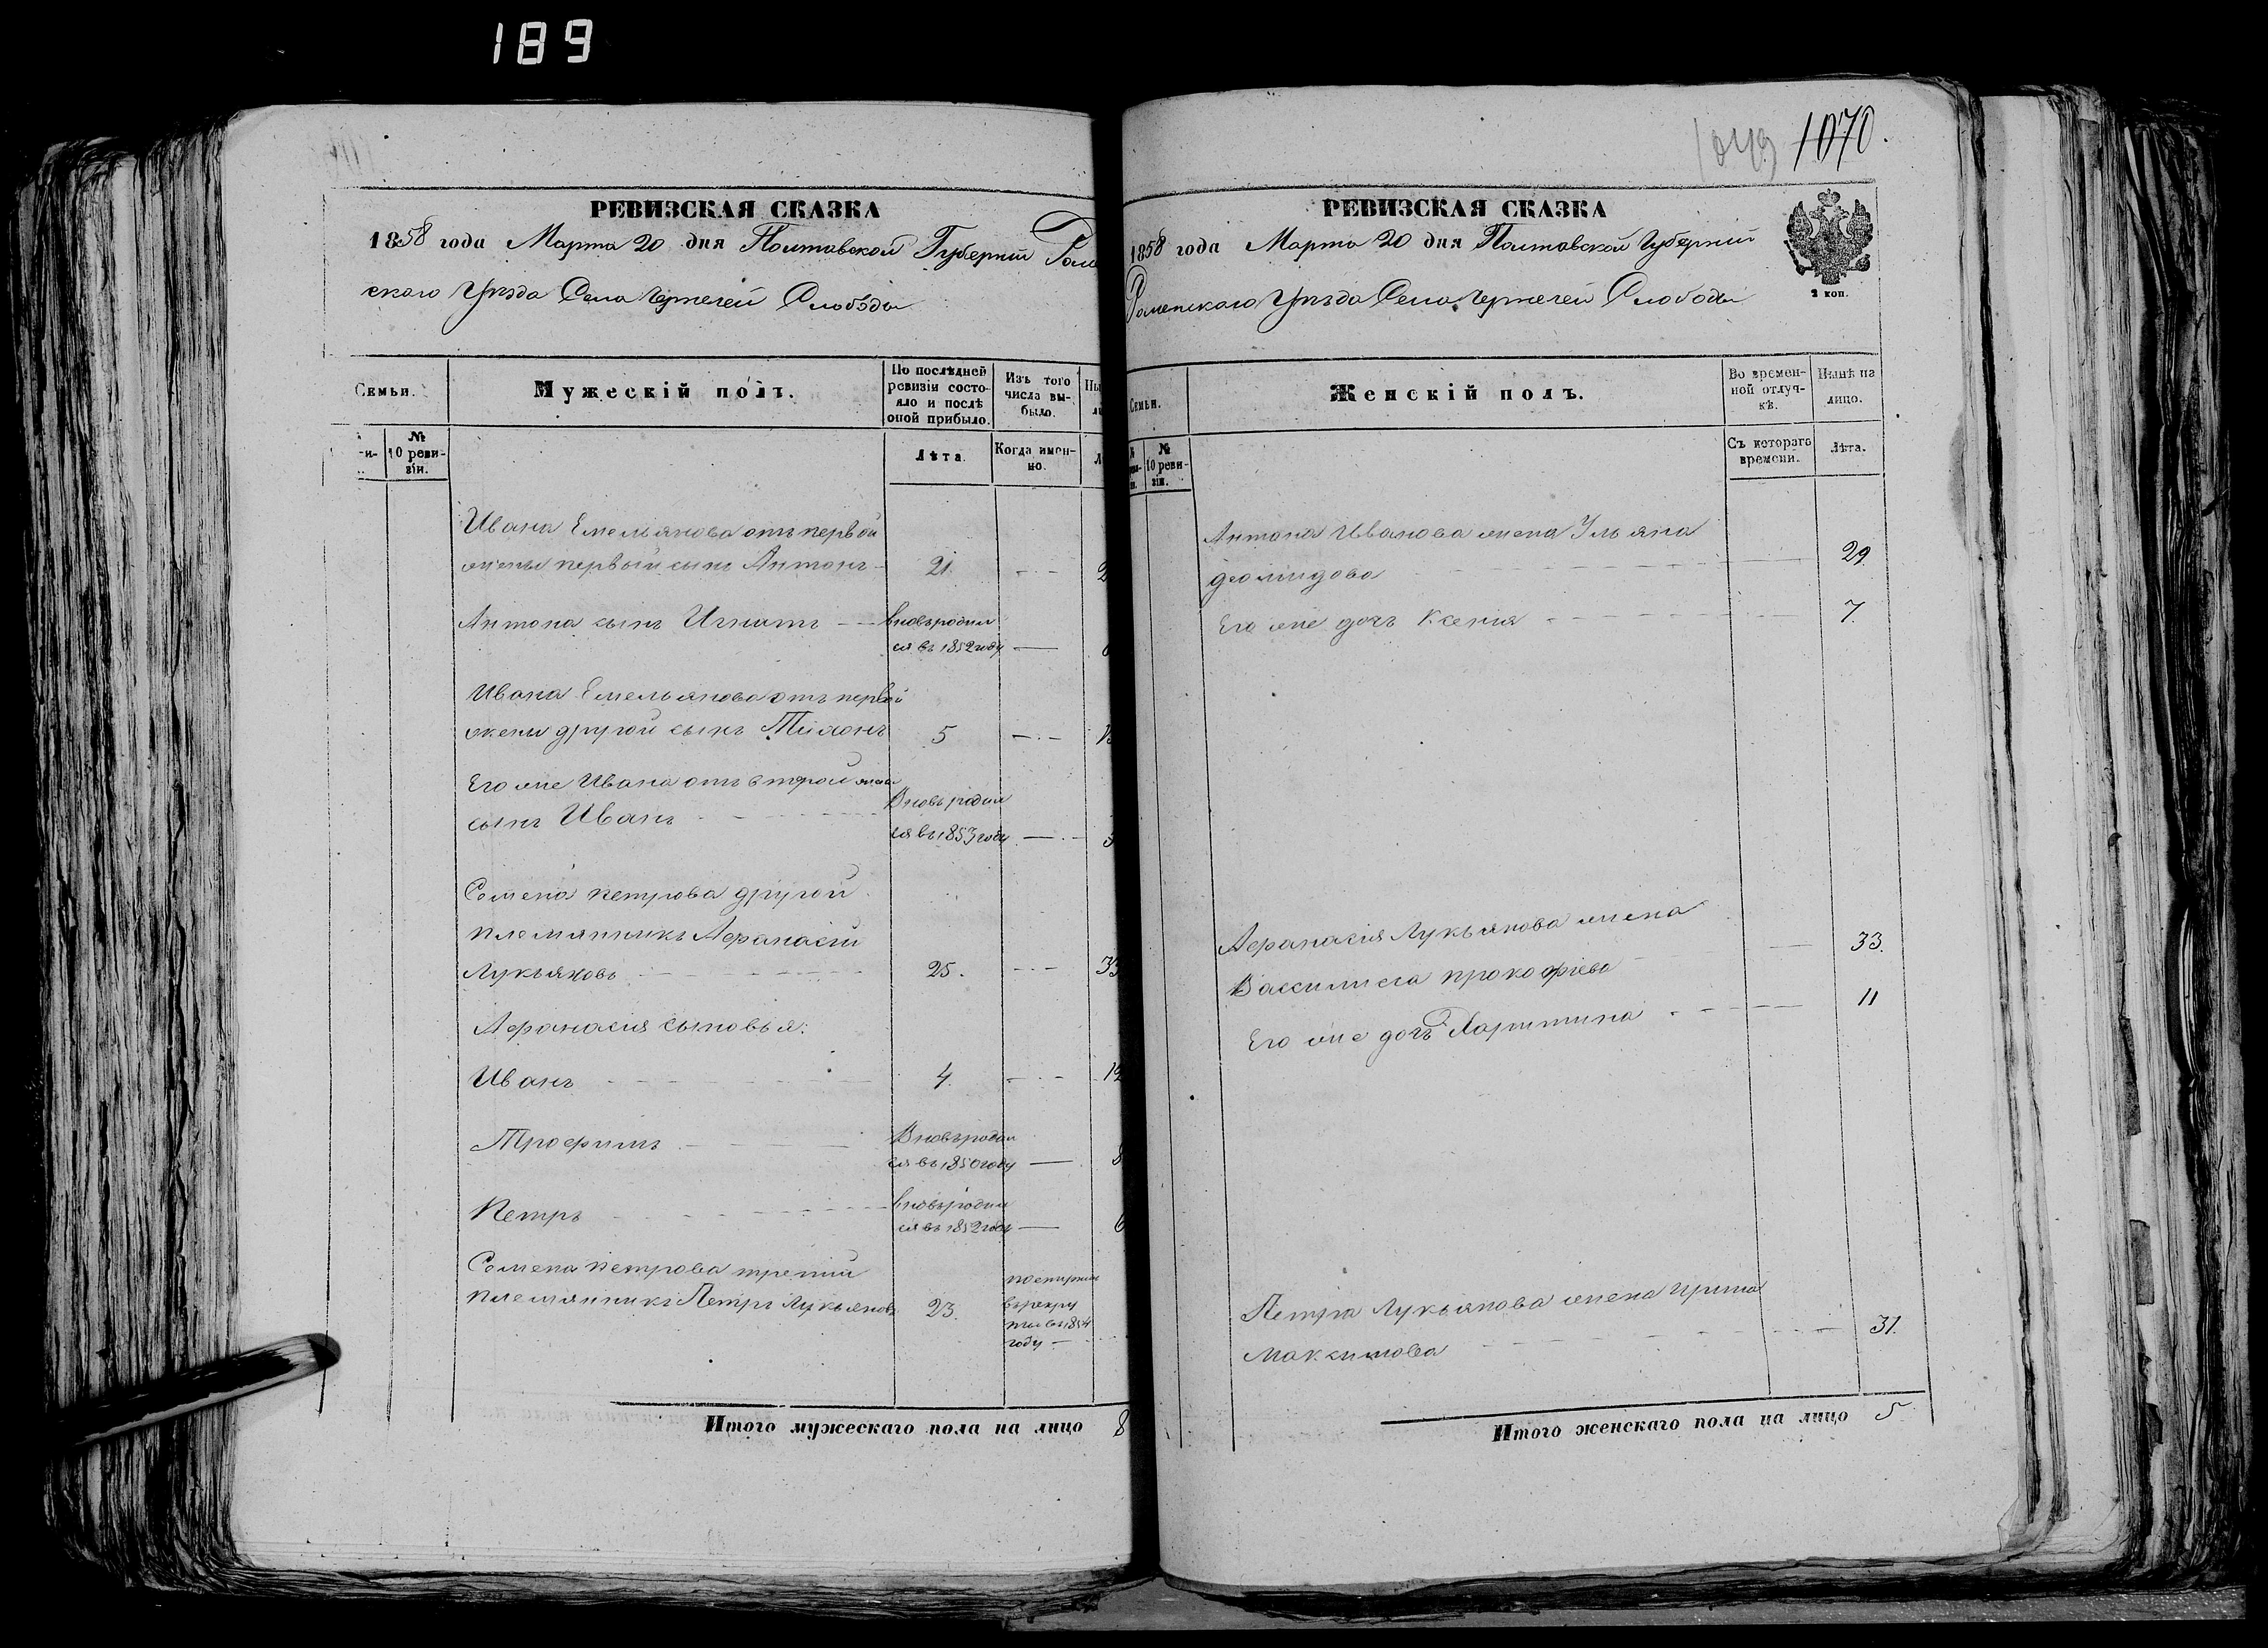 189
РЕВИЗСКАЯ СКАЗКА
1858 года Марта 20 дня Полтавской Губерніи
скаго Уѣзда Села Чернечей Слободы
Семьи.
Мужескій полъ.
По послѣдней
ревизіи состо-
яло и послѣ
оной прибыло.
Изъ того
числа вы-
было.
№
10 реви-
зіи.
Лѣта.
Когда имен-
но.
Ивана Емельянова отъ первой
жены первый сынъ Антонъ 21.
Антона сынъ Игнатъ вновь родил
ся въ 1852 году
Ивана Емельянова отъ первой
жены другой сынъ Тихонъ 5
Его же Ивана отъ второй жены
сынъ Иванъ Вновь родил
ся въ 1853 году
Семена Петрова другой
племянникъ Афанасій
Лукьяновъ 25. 33
Афанасія сыновья:
Иванъ 4. 12
Трофимъ Вновь родил
ся въ 1850 году 8
Петръ вновь родил
ся въ 1852 году 6
Семена Петрова третій
племянникъ Петръ Лукьяновъ 23.
въ рекру
ты въ 1854
году
Итого мужескаго пола на лицо 8
1049 1070.
РЕВИЗСКАЯ СКАЗКА
1858 года Марта 20 дня Полтавской Губерніи
Роменскаго Уѣзда Села Чернечей Слободы
2 коп.
Семьи.
Женскій полъ.
Во времен-
ной отлуч-
кѣ.
Нынѣ на
лицо.
№
10 реви-
зіи.
Съ котораго
времени.
Лѣта.
Антона Иванова жена Ульяна
29.
Его же дочь Ксенія 7.
Афанасія Лукьянова жена
Вассилиса Прокофіева 33.
Его же дочь Харитина 11
Петра Лукьянова жена Ирина
Максимова 31.
Итого женскаго пола на лицо 5